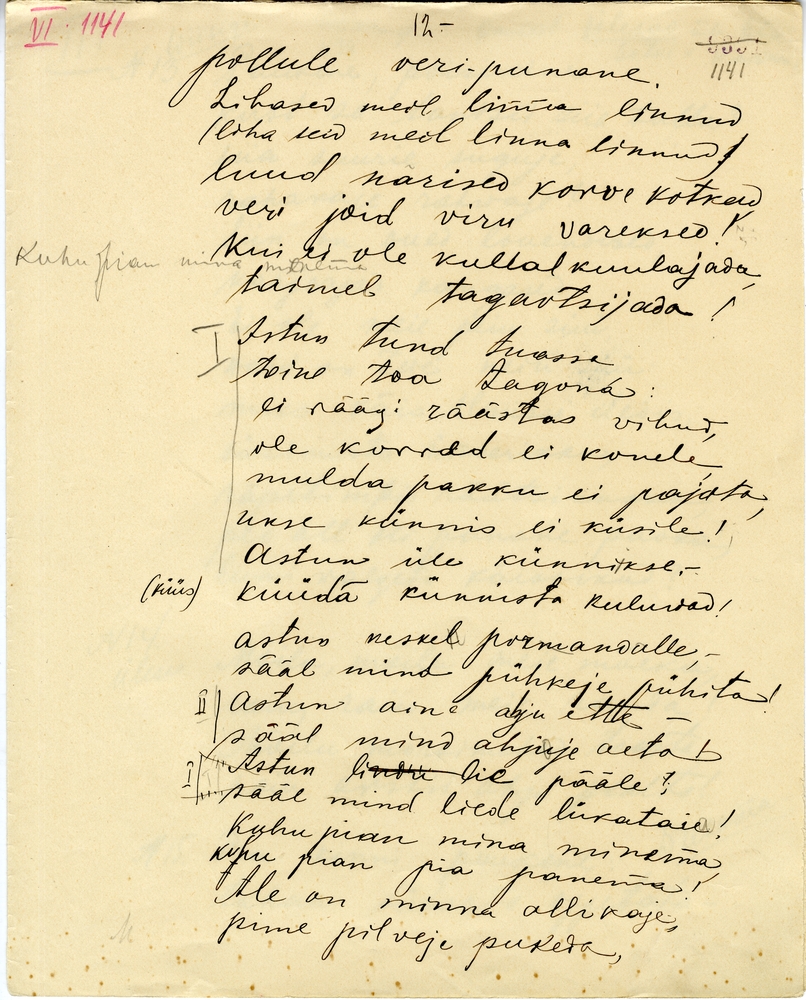 VI. 1141
12-
1141
põllule veri-punane.
Lihased meil linna linnud
(liha seid meil linna linnud)
luud närised korve kotkad
veri jõid viru vareksed!
Kuhu pian mina
Kui ei ole kullal kuulajada,
taimel tagaotsijada!
I
Astun tund tuassa
teine toa tagona:
ei räägi räästas vihud,
ole korrad ei konele,
mulda pakku ei pajata,
ukse künnis ei küsile!
Astun üle künnikse,-
(küüs)
küüdä künnista kuluwad!
astun keskel põrmandulle,-
sääl mind pühkeje pühita!
II
Astun aine ahju ette -
sääl mind ahjuje aeta!
I
Astun lie pääle!
sääl mind liede lükataie!
Kuhu pian mina minema,
kuhu pian pia panema!
Ale on minna allikaje,
pime pilveje pukeda,